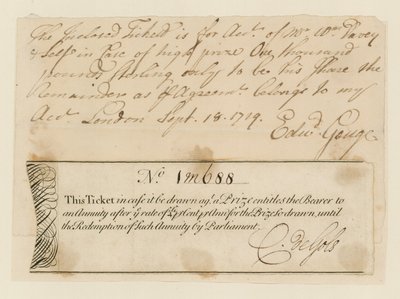 The Inclosed Tickett is for Acct. of Mr. Wm. Pavey
& Self in Case of high prize One thousand
pounds sterling only to be his Share the
Remainder as Agreemt. belongs to my
Acct. London Sept. 18. 1719.
Edwd. Gouge
No. 1m688
This Ticket in case it be drawn agt. a Prize entitles the Bearer to
an Annuity after ye rate of pr Cent pr Ann: for the Prize so drawn, until
the Redemption of such Annuity by Parliament.
C. de Sols